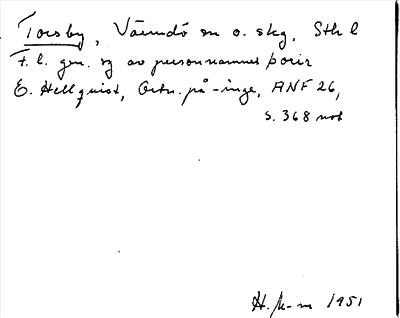 Torsby, Värmdö sn o. skg, Sthl
F. l. gen. sg av personnamnet þorir
E. Hellquist, Ortn. på -inge, ANF 26,
s. 368 not
H. 1951